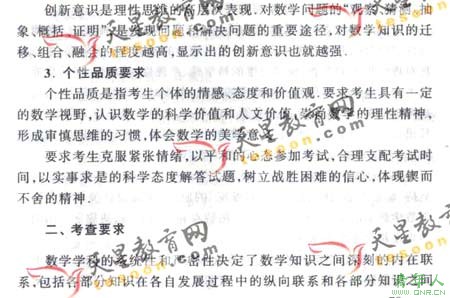 创新意识是理性思维的高层次表现.对数学问题的“观察、猜测、抽
象、概括、证明”,是发现问题和解决问题的重要途径,对数学知识的
迁移、组合、融会的程度越高,显示出的创新意识也就越强.
3. 个性品质要求
个性品质是指考生个体的情感、态度和价值观.要求考生具有一定
的数学视野,认识数学的科学价值和人文价值,崇尚数学的理性精神,
形成审慎思维的习惯,体会数学的美学意义.
要求考生克服紧张情绪,以平和的心态参加考试,合理支配考试时
间,以实事求是的科学态度解答试题,树立战胜困难的信心,体现锲而
不舍的精神.
二、考查要求
数学学科的系统性和严密性决定了数学知识之间深刻的内在联
系,包括各部分知识在各自发展过程中的纵向联系和各部分知识之间
天星教育网
天星教育网
天星教育网
天星教育网
清华人
WWW.QNR.CN